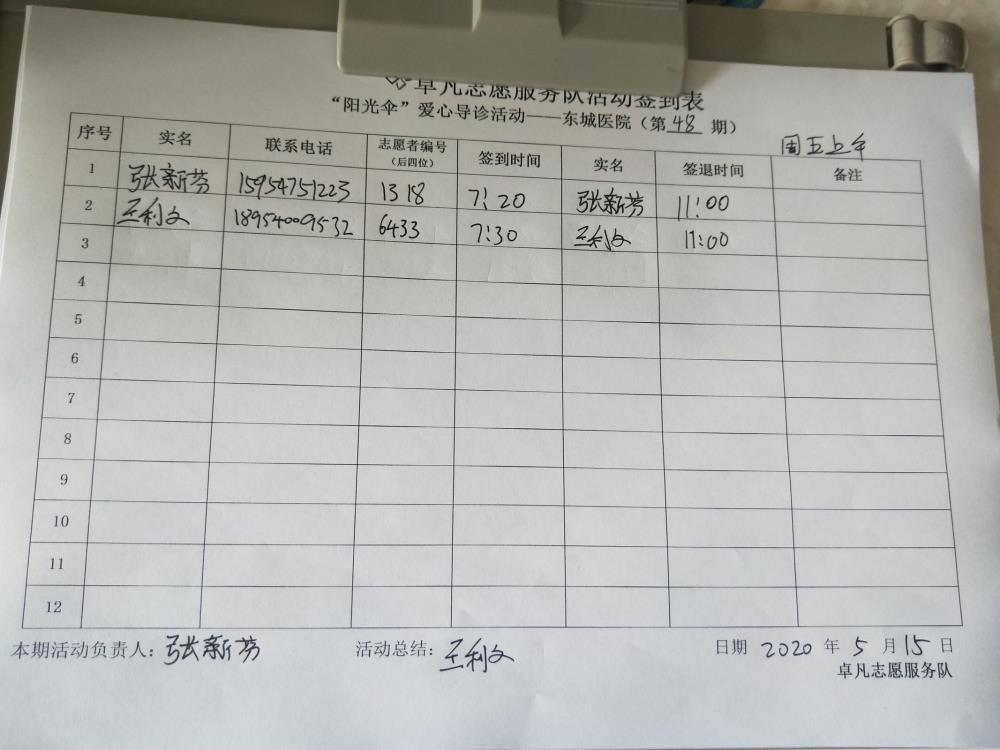 卓凡志愿服务队活动签到表
“阳光伞”爱心导诊活动——东城医院（第 48 期）
周五上午
序号 实名 联系电话 志愿者编号（后四位） 签到时间 实名 签退时间 备注
1 张新芬 15954751223 1318 7:20 张新芬 11:00
2 王利文 18954009532 6433 7:30 王利文 11:00
3
4
5
6
7
8
9
10
11
12
本期活动负责人：张新芬 活动总结：王利文 日期 2020 年 5 月 15 日
卓凡志愿服务队